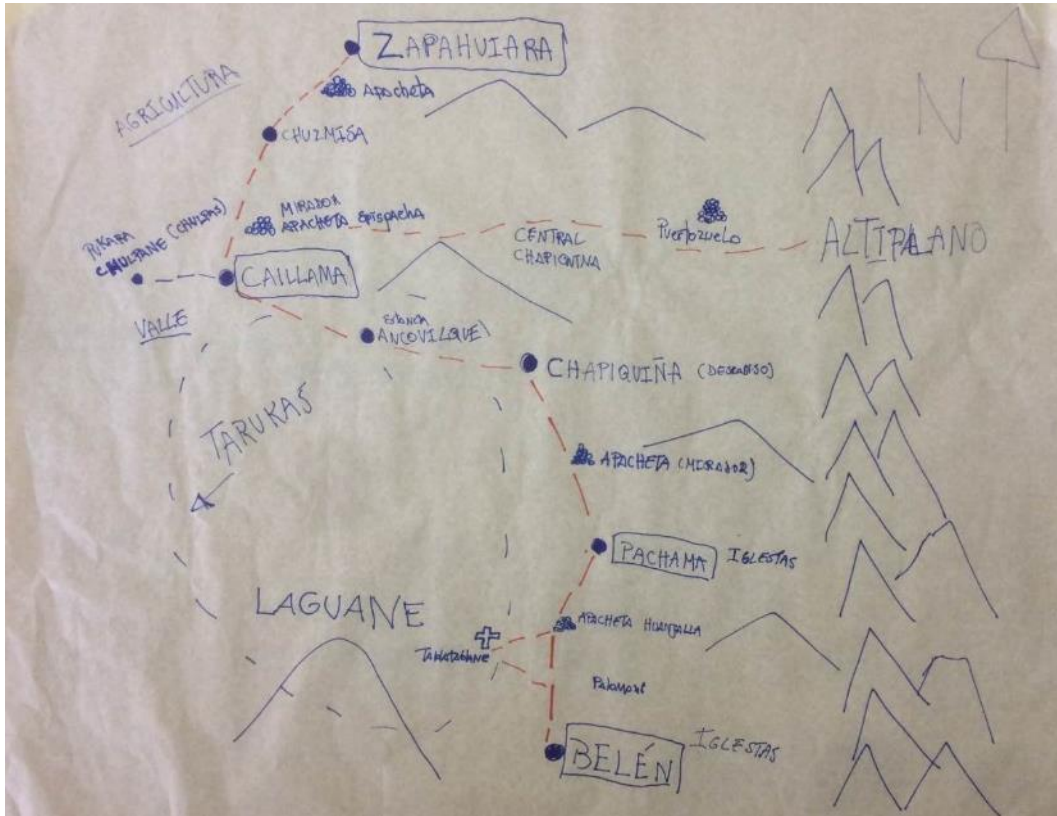 ZAPAHUIARA
N
AGRICULTURA
Apacheta
CHUZMISA
MIRADOR
APACHETA Epispacha
PUKARA
CHULPANE (CHULPAS)
CENTRAL
CHAPIQUIÑA
Puertozuelo
ALTIPLANO
CAILLAMA
VALLE
ESTANCIA
ANCOVILQUE
CHAPIQUIÑA (DESCANSO)
TARUKAS
APACHETA (MIRADOR)
PACHAMA
IGLESIAS
LAGUANE
APACHETA
BELÉN
IGLESIAS